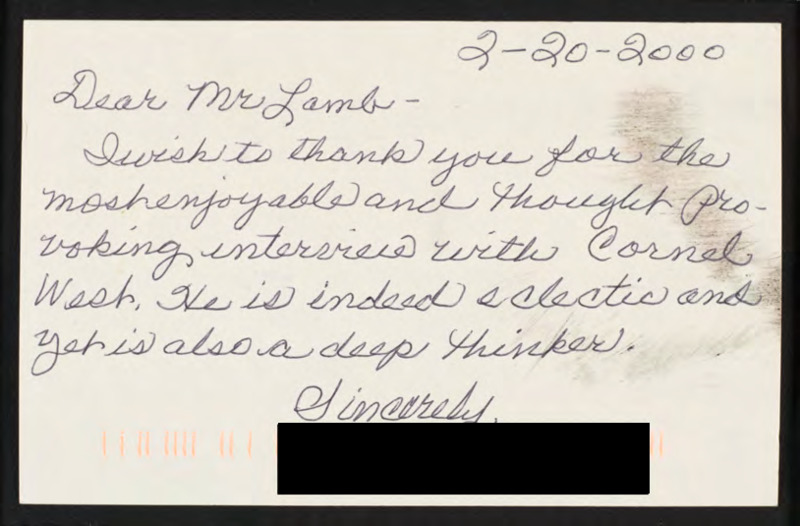 2-20-2000
Dear Mr Lamb-
I wish to thank you for the
most enjoyable and thought Pro-
voking interview with Cornel
West. He is indeed eclectic and
yet is also a deep thinker.
Sincerely,